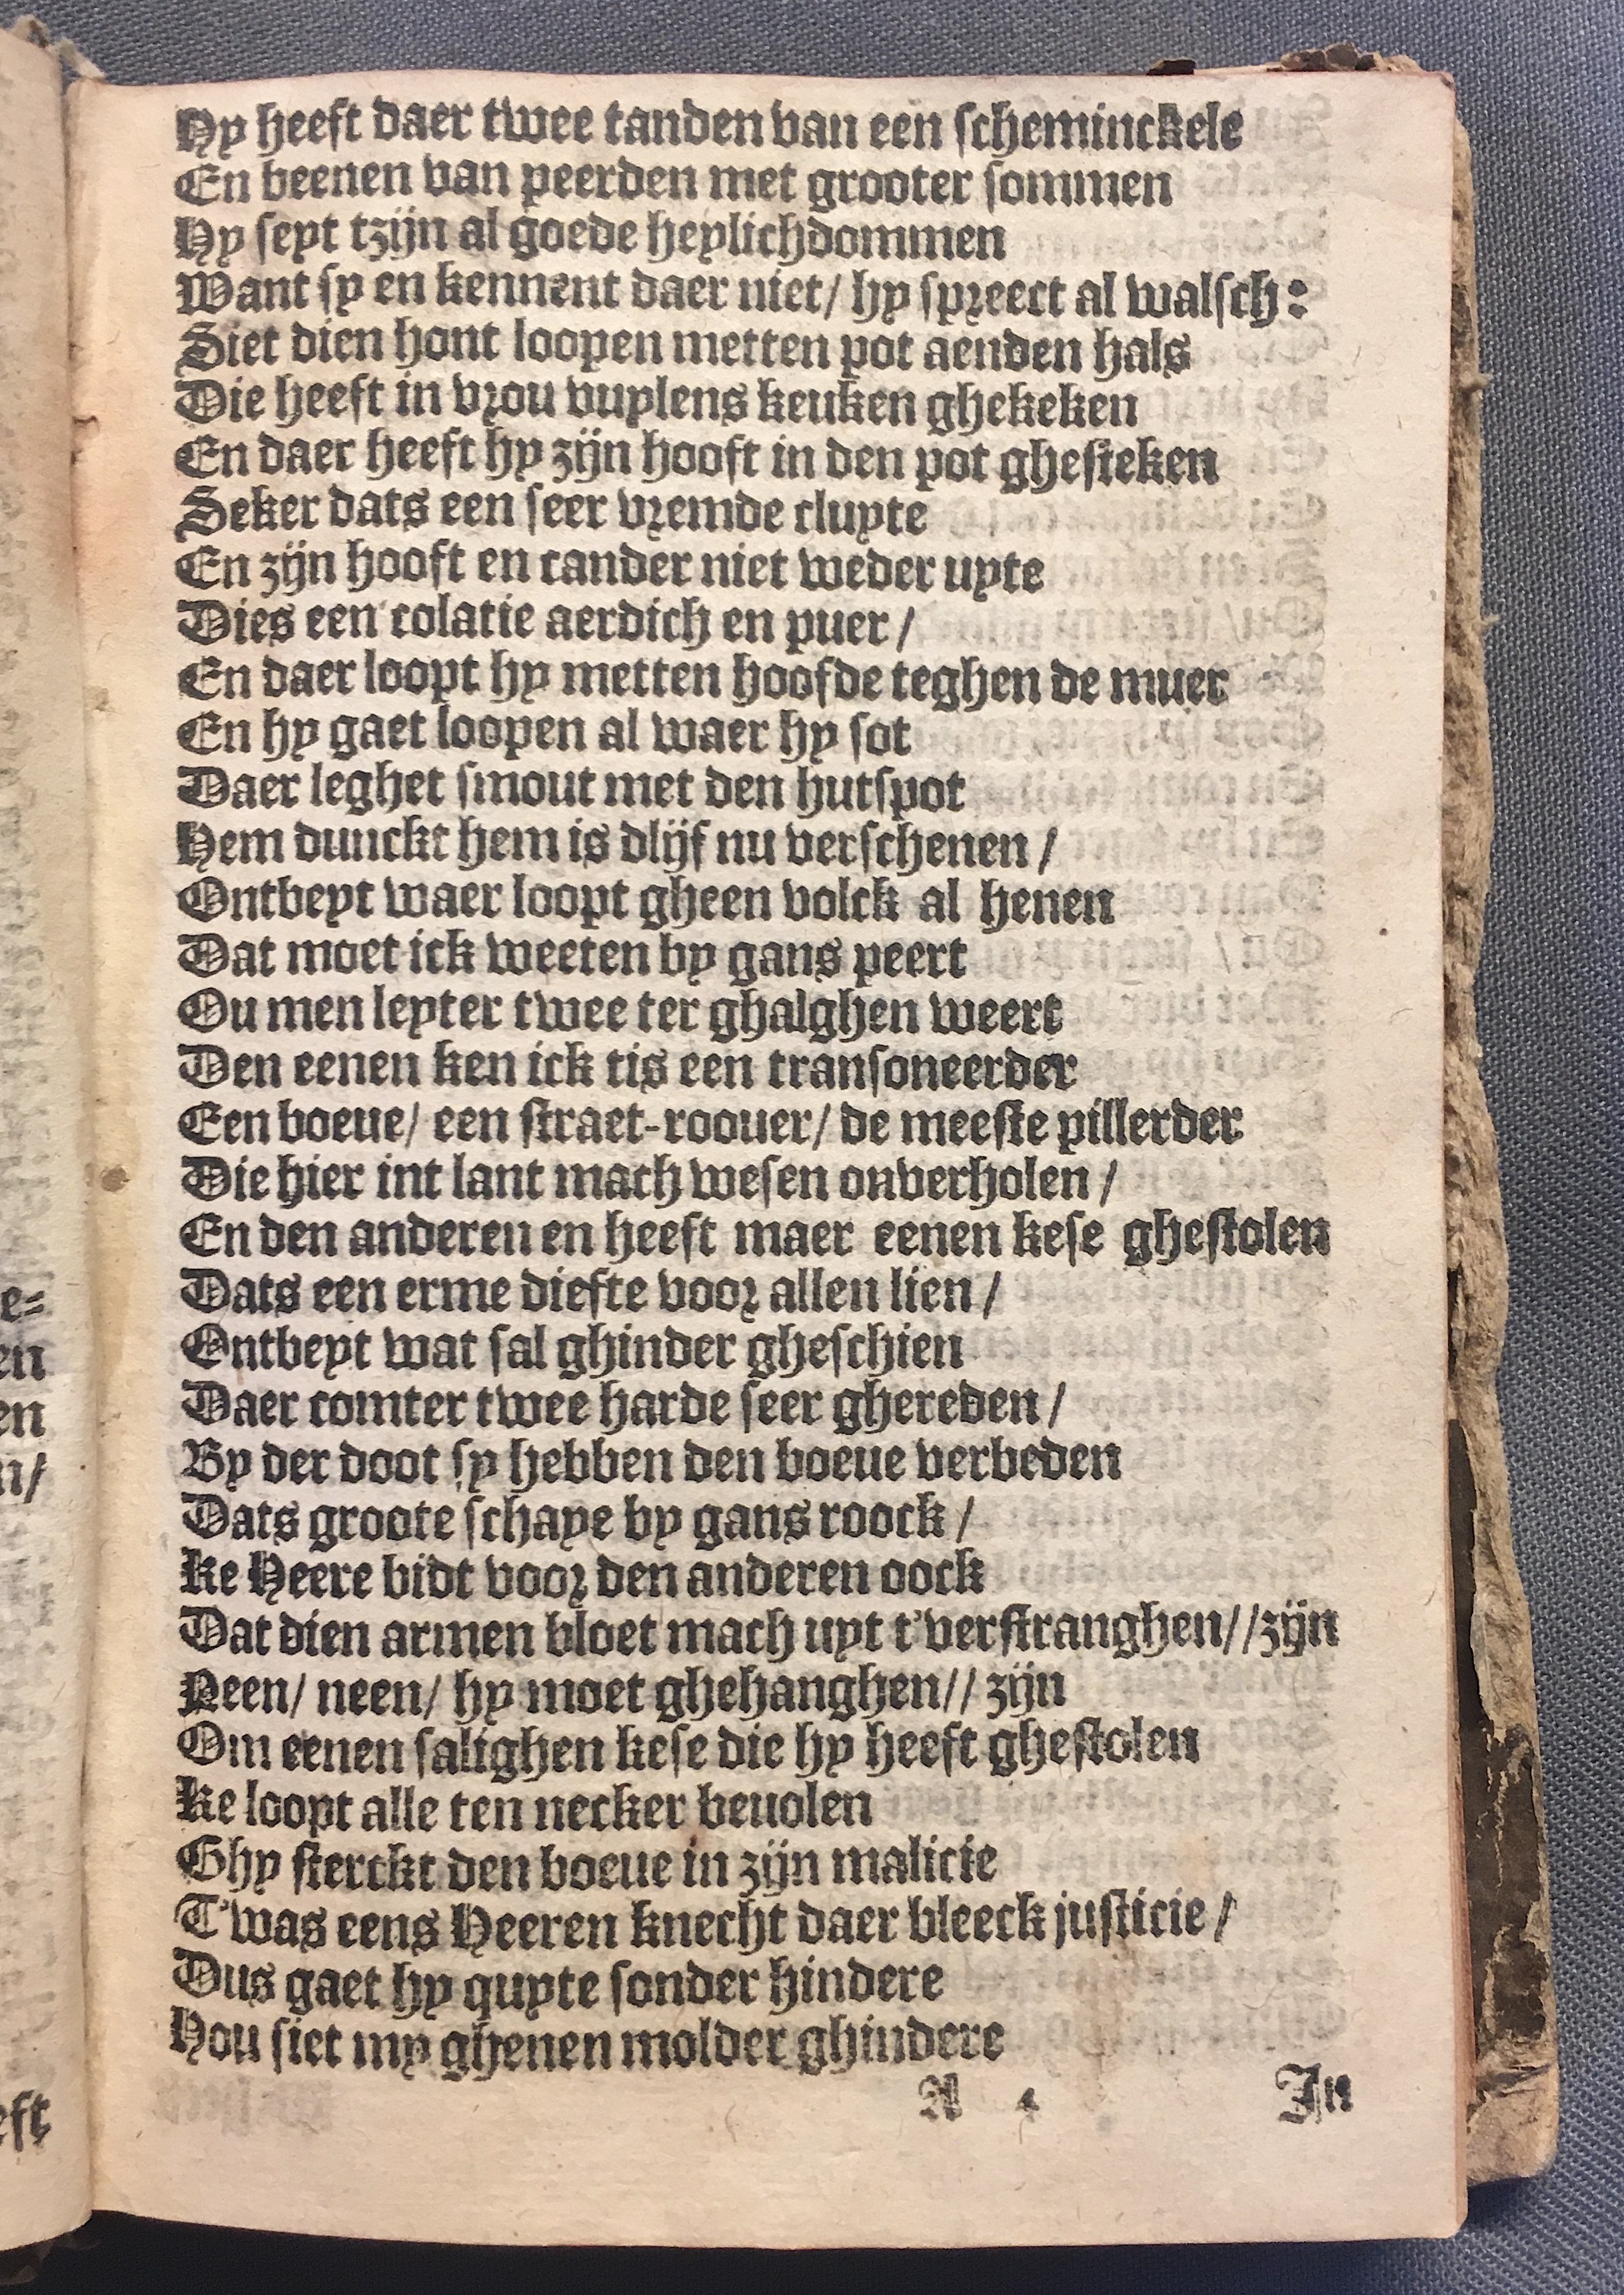 Hy heeft daer twee tanden van een scheminckele
En beenen van peerden met grooter sommen
Hy seyt tzijn al goede heylichdommen
Want sy en kennent daer niet/ hy spreect al walsch:
Siet dien hont loopen metten pot aenden hals
Die heeft in vrou vuylens keuken ghekeken
En daer heeft hy zijn hooft in den pot ghesteken
Seker dats een seer vremde cluyte
En zijn hooft en cander niet weder uyte
Dies een colatie aerdich en puer /
En daer loopt hy metten hoofde teghen de muer
En hy gaet loopen al waer hy sot
Daer leghet smout met den hutspot
Hem dunckt hem is dlijf nu verschenen /
Ontbeyt waer loopt gheen volck al henen
Dat moet ick weeten by gans peert
Ou men leyter twee ter ghalghen weert
Den eenen ken ick tis een transoneerder
Een boeue/ een straet-roouer/ de meeste pillerder
Die hier int lant mach wesen onverholen /
En den anderen en heeft maer eenen kese ghestolen
Dats een erme diefte voor allen lien /
Ontbeyt wat sal ghinder gheschien
Daer comter twee harde seer ghereden /
By der doot sy hebben den boeue verbeden
Dats groote schaye by gans roock /
Ke Heere bidt voor den anderen oock
Dat dien armen bloet mach uyt t'verstranghen//zijn
Neen/ neen/ hy moet ghehanghen// zijn
Om eenen salighen kese die hy heeft ghestolen
Ke loopt alle ten necker bevolen
Ghy sterckt den boeue in zijn malicie
T'was eens Heeren knecht daer bleeck justicie /
Dus gaet hy quyte sonder hindere
Hou siet my ghenen molder ghindere
A 4 In
e=
en
en
n/
eft